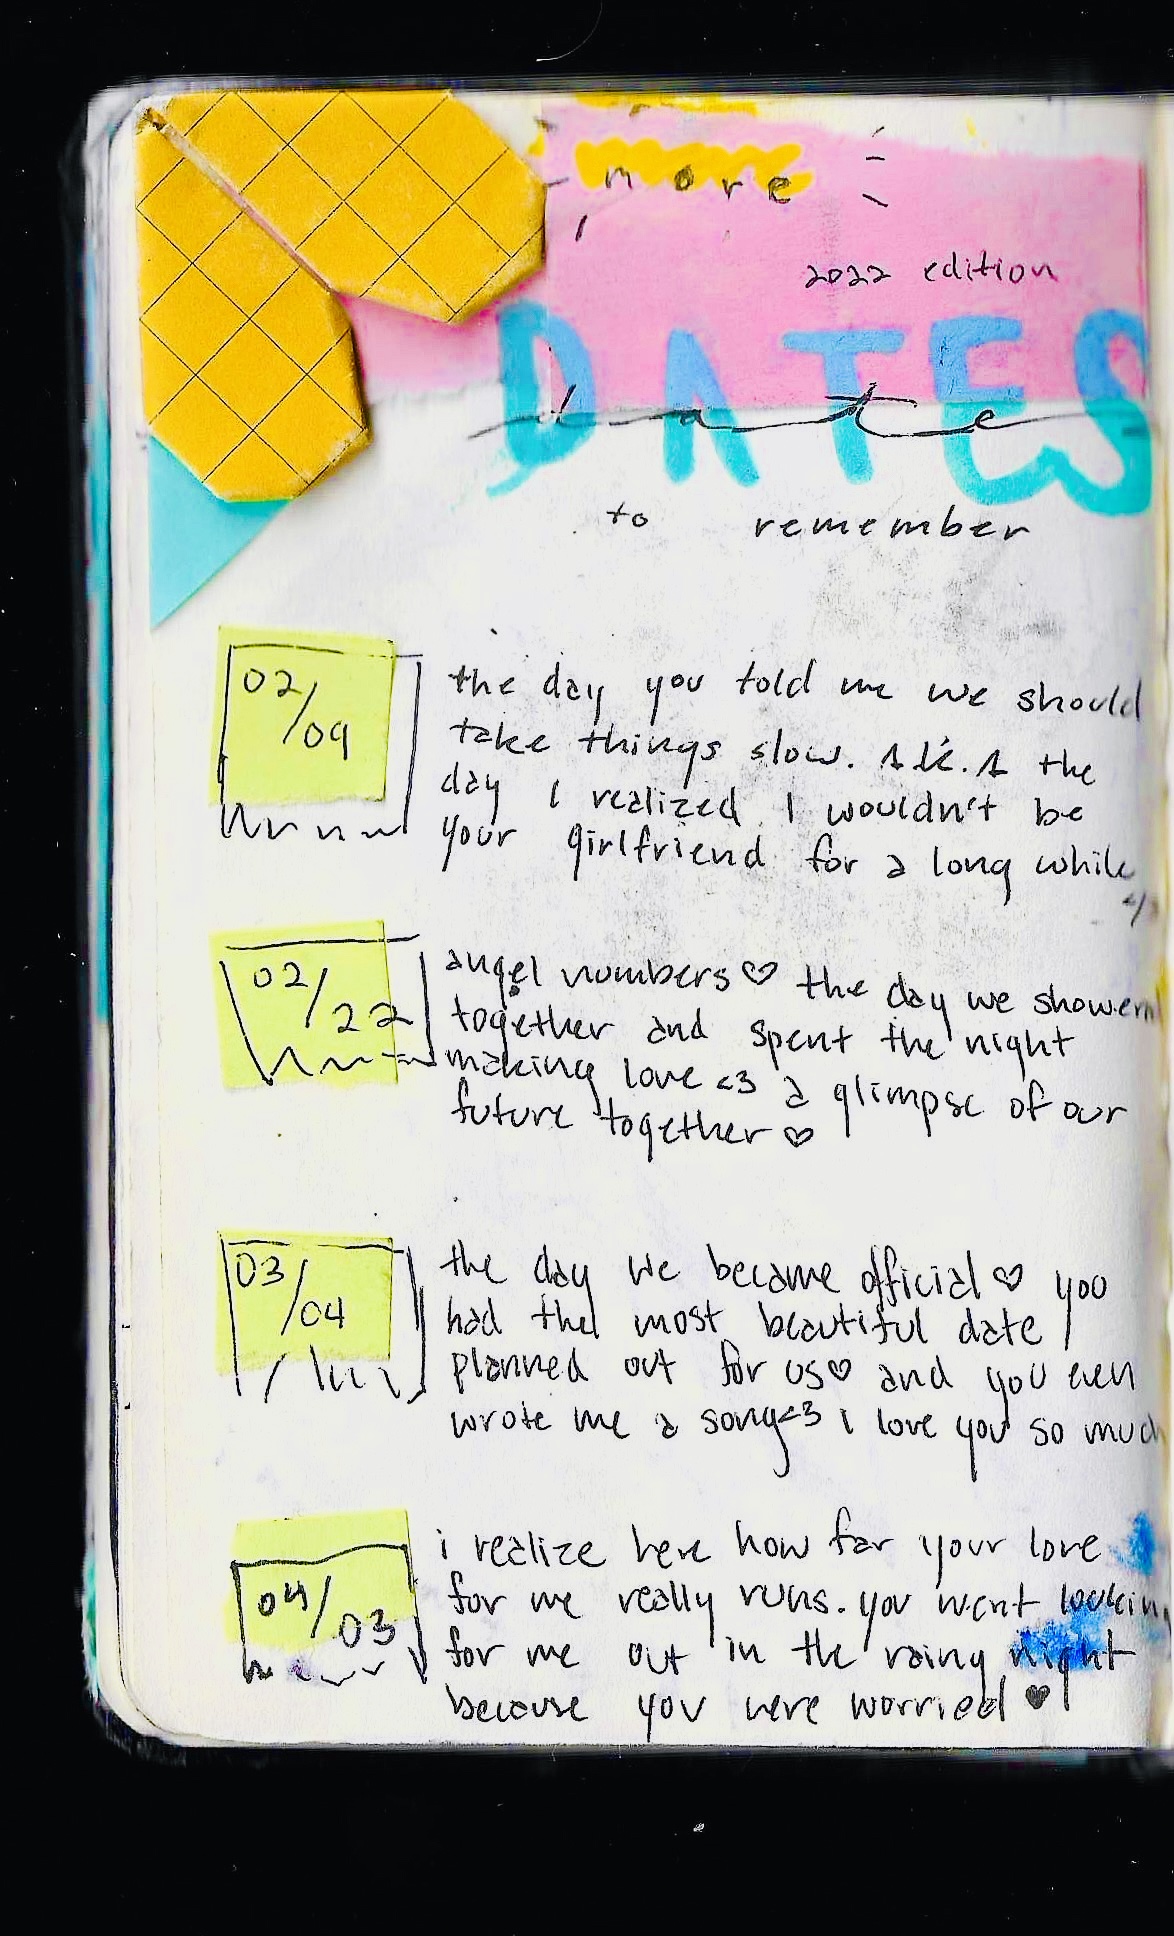 more
2022 edition
DATES
dates
to remember
02/09
the day you told me we should
take things slow. A.K.A the
day I realized I wouldn't be
your girlfriend for a long while
02/22
angel numbers♡ the day we showered
together and spent the night
making love <3 a glimpse of our
future together♡
03/04
the day we became official♡ you
had the most beautiful date
planned out for us♡ and you even
wrote me a song<3 i love you so much
04/03
i realize here how far your love
for me really runs. you went lookin
for me out in the rainy night
because you were worried♥